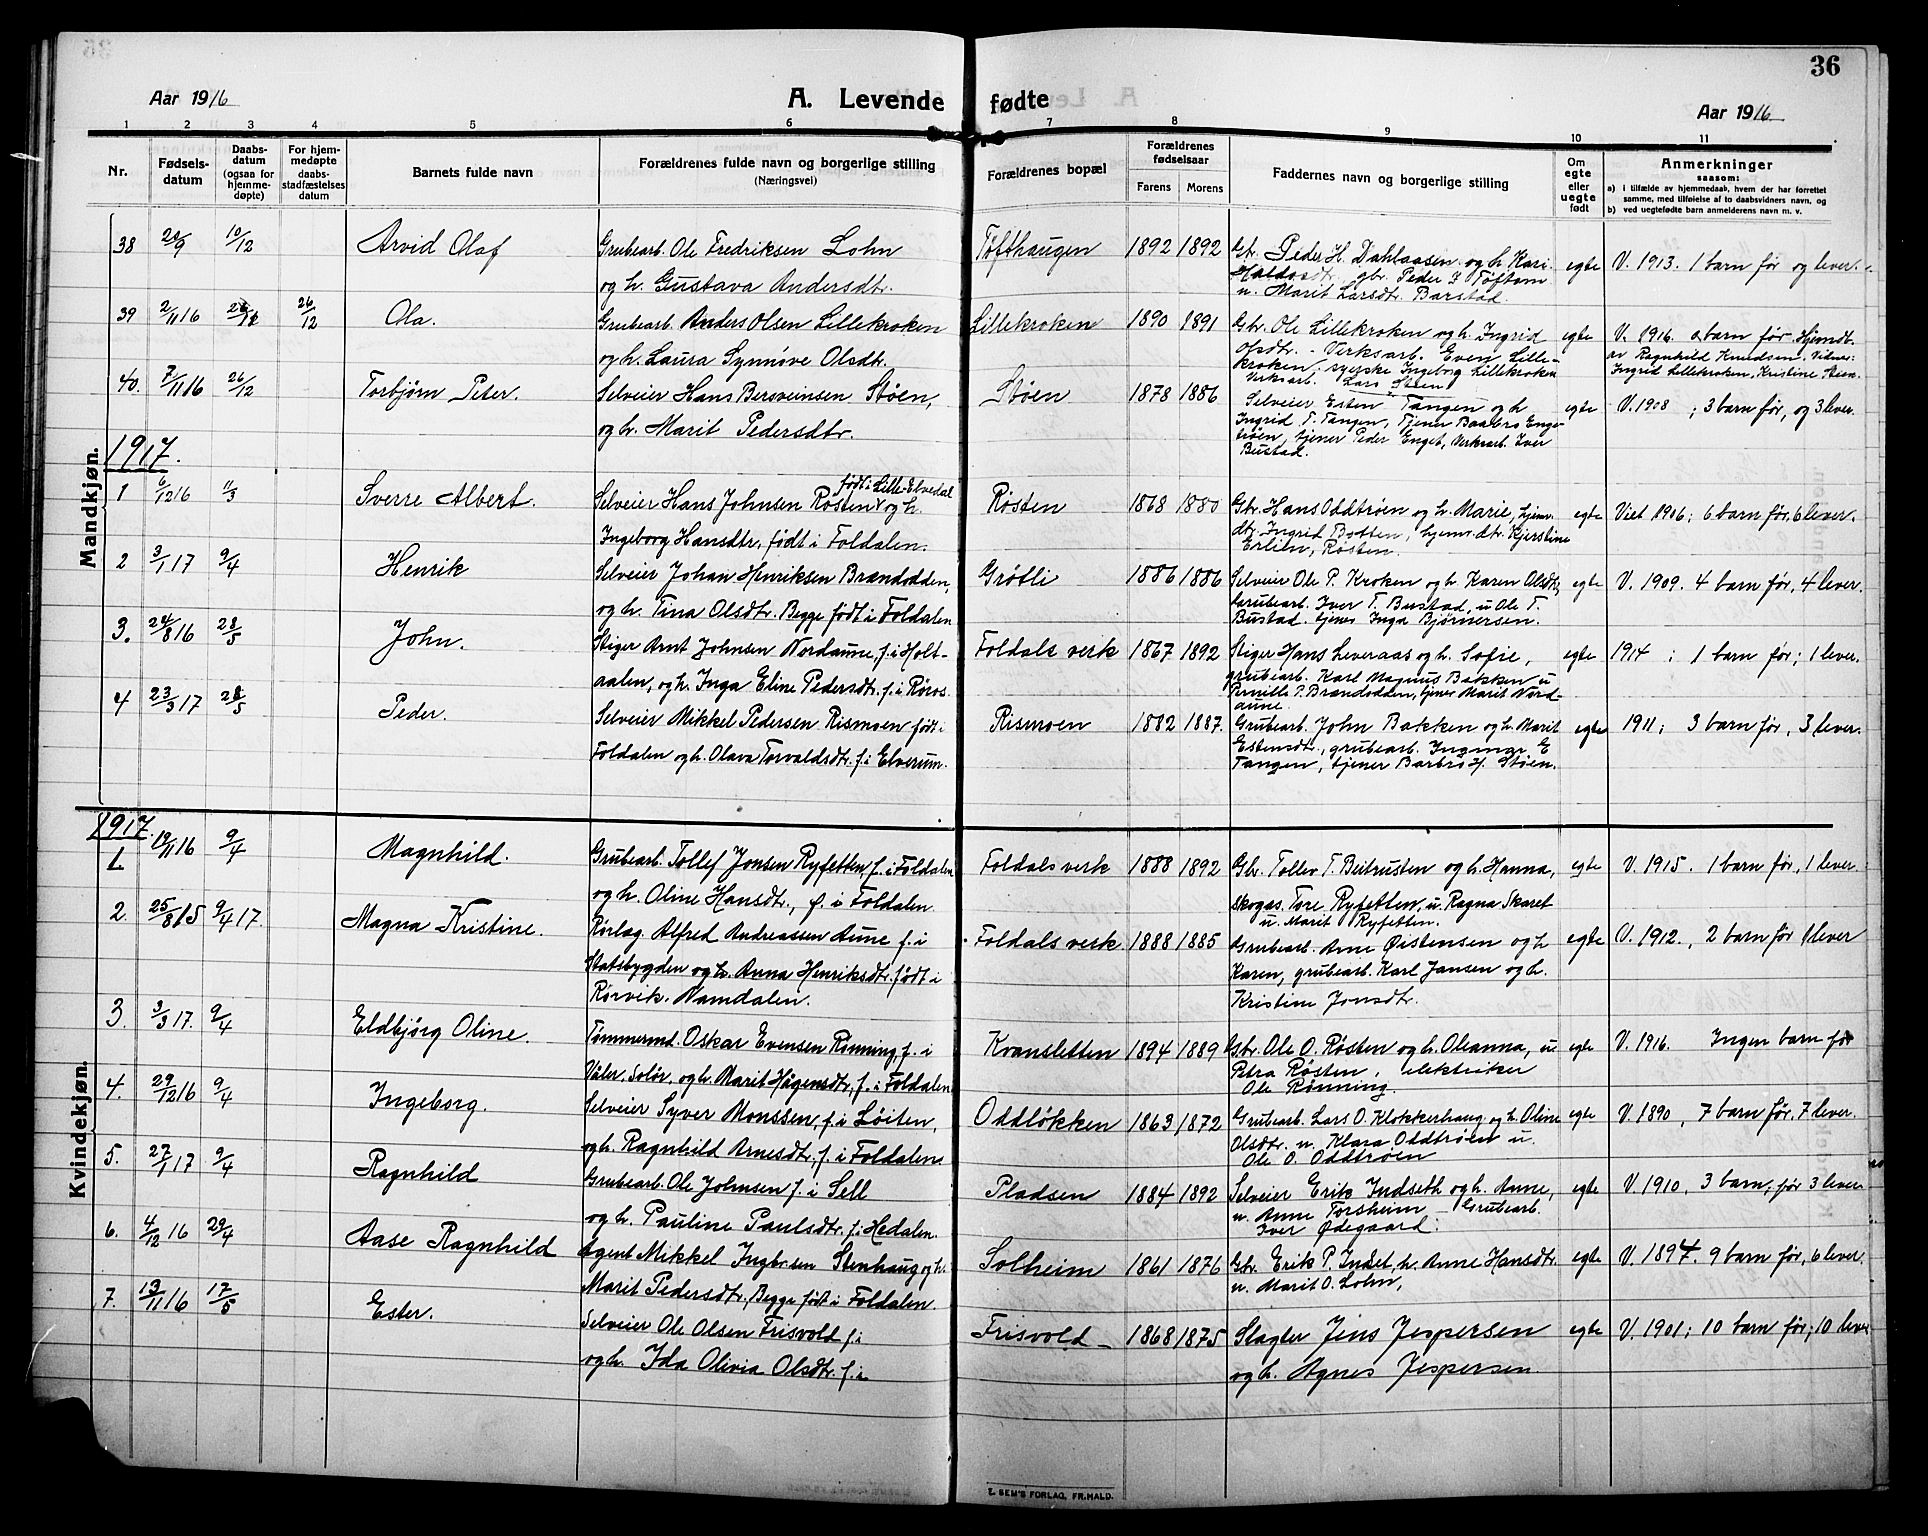 36
Aar 1916
A. Levende fødte
Aar 1916
1 2 3 4 5 6 7 8 9 10 11
Nr.
Fødsels-
datum
Daabs-
datum
(ogsaa for
hjemme-
døpte)
For hjem-
medøpte
daabs-
stadfæstelses
datum
Barnets fulde navn
Forældrenes fulde navn og borgerlige stilling
(Næringsvei)
Forældrenes bopæl
Forældrenes
fødselsaar
Farens Morens
Faddernes navn og borgerlige stilling
Om
egte
eller
uegte
født
Anmerkninger
saasom:
a) i tilfælde av hjemmedaab, hvem der har forrettet
samme, med tilføielse af to daabsvidners navn, og
b) ved uegtefødte barn anmelderens navn m. v.
Mandkjøn.
38 20/9 10/12 Arvid Olaf Grubearb. Ole Fredriksen Lohn Tøfthaugen 1892 1892 Gbr. Peder H. Dahlaasen og h. Kari egte V. 1913. 1 barn før og lever.
og h. Gustava Andersdtr. gbr. Peder J Tøftom
u. Marit Larsdtr. Barstad.
39 2/11 16 26/12 Ola. Grubearb. Anders Olsen Lillekroken Lillekroken 1890 1891 Gbr. Ole Lillekroken og h. Ingrid egte V. 1916. 0 barn før. Hjemdt.
og h. Laura Synnøve Olsdtr. Olsdtr. - Verksarb. Even Lille- av Ragnhild Knudsen. Vidner:
kroken, Ingeborg Lillekroken Ingrid Lillekroken, Kristine Steen.
Verksarb. Lars Steen
40. 7/11 16 26/12 Torbjørn Peter. Selveier Hans Bersveinsen Støen, Støen 1878 1886 Selveier Esten Tangen og h egte V. 1908 ; 3 barn før, og 3 lever.
og h. Marit Pedersdtr. Ingrid T. Tangen, Tjener Baabro Enge-
tjener Peder Enget, Verksarb. Iver
Bustad.
1917.
1 6/12 16 11/3 Sverre Albert. Selveier Hans Johnsen Røsten født i Lille-Elvedal og h. Røsten 1868 1880 Gbr. Hans Oddtrøen og h. Marie, hjem. egte Viet 1906; 6 barn før, 6 lever.
Ingeborg Hansdtr. født i Foldalen. dtr. Ingrid Botten, hjemv. dtr. Kjerstine
Erlien, Røsten.
2 3/1 17 9/4 Henrik Selveier Johan Henriksen Brandodden, Grøtli 1886 1886 Selveier Ole P. Kroken og h. Karen Olsdtr, egte V. 1909. 4 barn før, 4 lever.
og h. Tina Olsdtr. Begge født i Foldalen Grubearb. Iver T. Bustad, u Ole T.
Bustad. tjener Inga Bjørnersen.
3. 24/8 16 28/5 John. Stiger Arnt Johnsen Nordaune, f. i Holt- Foldals verk 1867 1892 Stiger Hans Leveraas og h. Sofie, egte 1914 ; 1 barn før; 1 lever.
aalen, og h. Inga Eline Pedersdtr. f. i Røros. grubearb. Karl Magnus Bakken u
Pernille P. Brandodden, tjener Marit Nord-
aune.
4 23/3 17 28/5 Peder. Selveier Mikkel Pedersen Rismoen født i Rismoen 1882 1887. Grubearb. John Bakken og h. Marit egte 1911; 3 barn før, 3 lever.
Foldalen og h. Olava Torvaldsdtr. f. i Elverum. Estensdtr., grubearb. Ingmar E
Tangen, tjener Barbro H. Støen.
Kvindekjøn.
1917.
1 19/11 16 9/4 Magnhild. Grubearb. Tollef Jonsen Ryfetten, f. i Foldalen Foldalsverk 1888 1892 Gbr. Tollev T. Beitrusten og h. Hanna, egte V. 1915. 1 barn før, 1 lever
og h. Oline Hansdtr., f. i Foldalen. skogas. Tore Ryfetten, u. Ragna Skaret
u. Marit Ryfetten.
2. 25/8 15 9/4 17. Magna Kristine. Rørlag. Alfred Andreassen Aune f. i Foldals verk 1888 1885 Grubearb. Arne Øistensen og h egte V. 1912. , 2 barn før 1 lever
Statsbygden og h. Anna Henriksdtr. født i Karen, grubearb. Karl Jansen og h.
Rørvik. Namdalen. Kristine Jonsdtr.
3. 3/3 17. 9/4 Eldbjørg Oline. Tømmermd. Oskar Evensen Rønning, f. i Kvansletten 1894 1889 Gbr. Ole O. Røsten og h. Oleanna, u egte V. 1916. Ingen barn før
Våler, Solør, og h. Marit Hågensdtr, f. i Foldalen Petra Røsten, elektriker
Ole Rønning.
4. 29/12 16 9/4 Ingeborg. Selveier Syver Monssen, f. i Løiten, Oddløkken 1863 1872 Grubearb. Lars O. Klokkerhaug og h. Oline egte V. 1890, 7 barn før, 7 lever.
og h. Ragnhild Arnesdtr, f. i Foldalen. Olsdtr. u. Klara Oddtrøen u.
Ole O. Oddtrøen
5. 27/1 17 9/4 Ragnhild Grubearb. Ole Johnsen f. i Sell Pladsen 1884 1892 Selveier Erik Indseth og h. Anne, egte V. 1910, 3 barn, før 3 lever
og h. Pauline Paulsdtr. f. i Hedalen. u. Anne Torsheim - Grubearb.
Iver Ødegaard.
6. 4/12 16 29/4 Aase Ragnhild Agent Mikkel Ingbrsen Stenhaug og h. Solheim 1861 1876 Gbr. Erik P. Indset, h. Anne Hansdtr. egte V. 1897. 9 barn før, 6 lever.
Marit Pedersdtr. Begge født i Foldalen. u. Marit O. Lohn,
7. 13/11 16 17/5 Ester. Selveier Ole Olsen Frisvold f. i Frisvold 1868 1875 Slagter Jens Jespersen egte V. 1901; 10 barn før; 10 lever
og h. Ida Olivia Olsdtr. f. i og h. Agnes Jespersen
E. SEM'S FORLAG, FR.HALD.